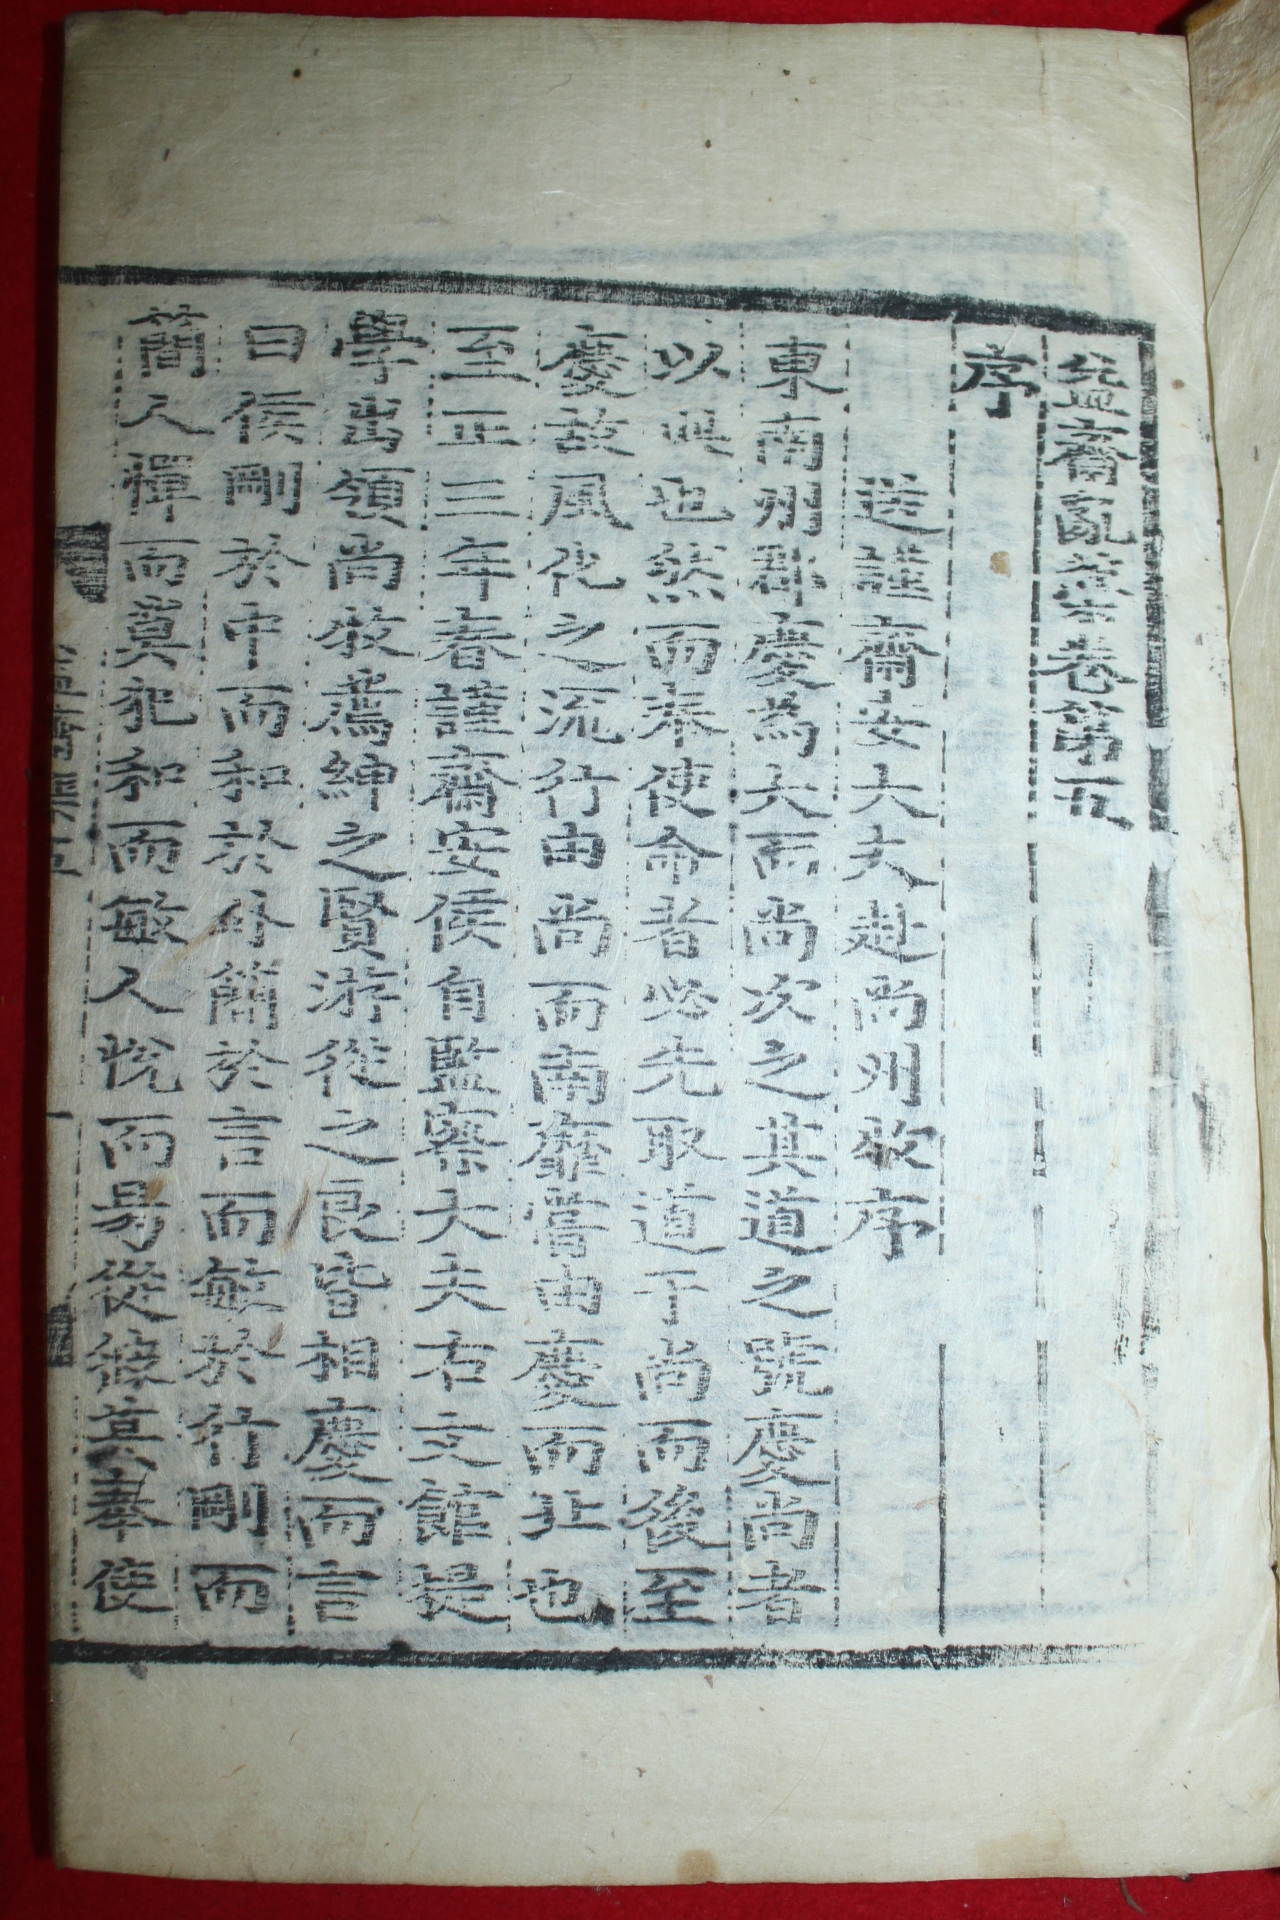 益齋亂藁卷第五
序
送謹齋安大夫赴尙州牧序
東南州郡慶爲大而尙次之其道之號慶尙者
以此也然而奉使命者必先取道于尙而後至
慶故風化之流行由尙而南靡嘗由慶而北也
至正三年春謹齋安侯自監察大夫右文館提
學出領尙牧薦紳之賢游從之良皆相慶而言
曰侯剛於中而和於外簡於言而敏於行剛而
簡人憚而莫犯和而敏人悅而易從繼其奉使